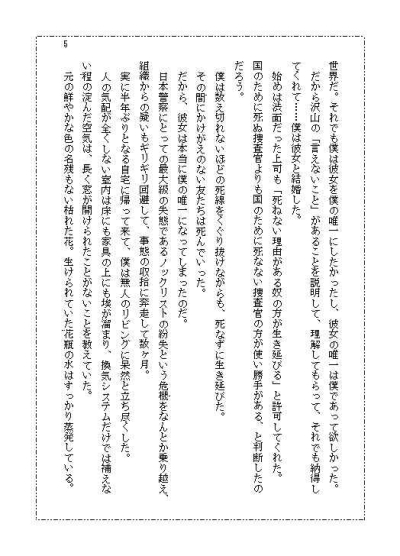 世界だ。それでも僕は彼女を僕の唯一にしたかったし、彼女の唯一は僕であって欲しかった。
だから沢山の「言えないこと」があることを説明して、理解してもらって、それでも納得し
てくれて……僕は彼女と結婚した。
始めは渋面だった上司も「死ねない理由がある奴の方が生き延びる」と許可してくれた。
国のために死ぬ捜査官よりも国のために死なない捜査官の方が使い勝手がある、と判断したの
だろう。
僕は数え切れないほどの死線をくぐり抜けながらも、死なずに生き延びた。
その間にかけがえのない友たちは死んでいった。
だから、彼女は本当に僕の唯一になってしまったのだ。
日本警察にとっての最大級の失態であるノックリストの紛失という危機をなんとか乗り越え、
組織からの疑いもギリギリ回避して、事態の収拾に奔走して数ヶ月。
実に半年ぶりとなる自宅に帰って来て、僕は無人のリビングに呆然と立ち尽くした。
人の気配が全くしない室内は床にも家具の上にも埃が溜まり、換気システムだけでは補えな
い程の淀んだ空気は、長く窓が開けられたことがないことを教えていた。
元の鮮やかな色の名残もない枯れた花。生けられていた花瓶の水はすっかり蒸発している。
5